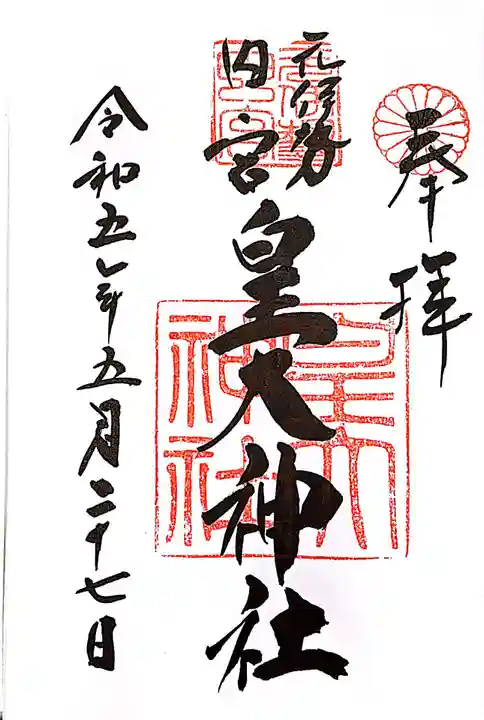 奉拝
元伊勢
内宮
皇大神社
令和五年五月二十七日
皇大
神社